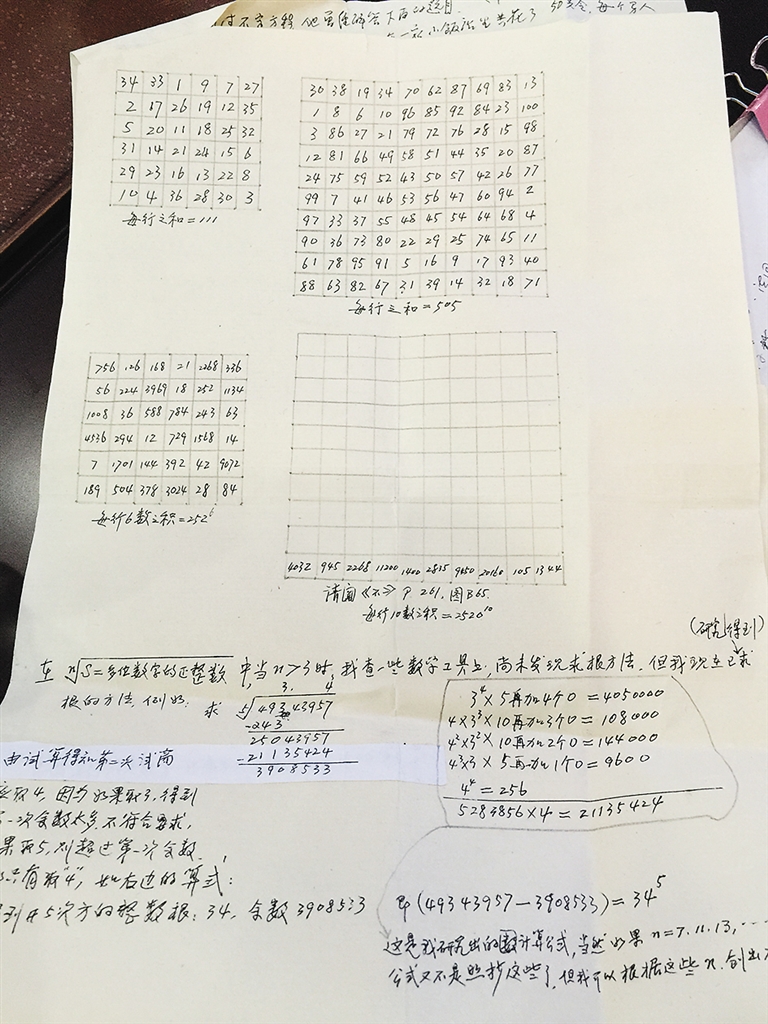 34 33 1 9 7 27
2 17 26 19 12 35
5 20 11 18 25 32
31 14 21 24 15 6
29 23 16 13 22 8
10 4 36 28 30 3
每行之和=111
30 38 19 34 70 62 87 69 83 13
1 8 6 10 96 85 92 84 23 100
3 86 27 21 79 72 76 28 15 98
12 81 66 49 58 51 44 35 20 87
24 75 59 52 43 50 57 42 26 77
99 7 41 46 53 56 47 60 94 2
97 33 37 55 48 45 54 64 68 4
90 36 73 80 22 29 25 74 65 11
61 78 95 91 5 16 9 17 93 40
88 63 82 67 31 39 14 32 18 71
每行之和=505
756 126 168 21 2268 336
56 224 3969 18 252 1134
1008 36 588 784 243 63
4536 294 12 729 1568 14
7 1701 144 392 42 9072
189 504 378 3024 28 84
每行6数之积=252⁶
4032 945 2268 11200 1400 2815 9450 20160 105 1344
P 261.图B65.
每行10数之积=2520¹⁰
(研究得到)
在 ⁿ√S=多位数字的正整数 中,当n>3时,我查一些数学工具书,尚未发现求根方法.但我现在已求
根的方法.例如:
求
3. 4
5√49343957
-243
25043957
-21135424
3908533
3⁴×5再加4个0=4050000
4×3³×10再加3个0=108000
4²×3²×10再加2个0=144000
4³×3×5再加1个0=9600
4⁴=256
5283856×4=21135424
由试算得知第二次试商
应取4,因为如果取3,得到
一次余数太多,不符合要求,
果取5,则超过第一次余数.
只有取"4",如右边的算式:
到开5次方的整数根:34,余数3908533
即(49343957-3908533)=34⁵
这是我研究出的图计算公式,当然如果n=7.11.13,……
公式又不是照抄这些了,但我可以根据这些n.创出